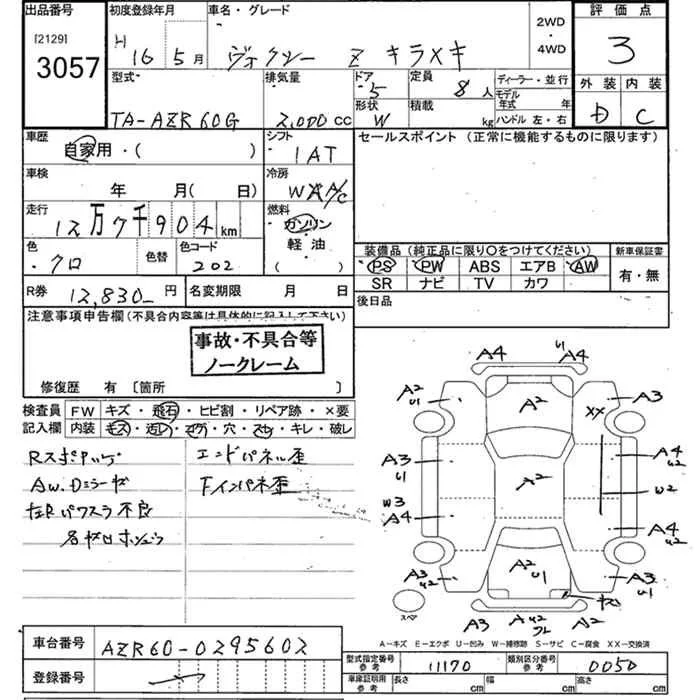 出品番号 初度登録年月 車名・グレード 2WD・4WD 評価点
[2129]
3057
H 16 5月 ヴォクシー Z キラメキ 3
外装 内装
D C
型式 排気量 ドア 定員 ディーラー・並行
TA-AZR60G 2,000 cc 5 8人 モデル年式 年
形状 積載 ハンドル 左・右
W kg
車歴 シフト セールスポイント (正常に機能するものに限ります)
自家用・( ) 1AT
車検 冷房
年 月(日) WAA/C
走行 燃料
12万7千904km ガソリン
軽油
( )
色 色替 色コード
クロ 202
装備品(純正品に限り○をつけてください) 新車保証書
PS PW ABS エアB AW 有・無
SR ナビ TV カワ
R券 12,830 円 名変期限 月 日 後日品
注意事項申告欄(不具合内容等は具体的に記入して下さい)
事故・不具合等
ノークレーム
修復歴 有 〔箇所 〕
検査員 FW キズ・飛石・ヒビ割・リペア跡・×要
記入欄 内装 コゲ・穴・キレ・破レ
エンドパネル歪
AW.Dミラーキズ
左Rパワスラ不良
A4 U1 A4
A2 U1 A2 XX A3
A3 U1 A2 A4 U2
W3 W2
A4 A4 U2
A3 U2 A2 U1 A3 U2
スペア A3 A2
A-キズ E-エクボ U-凹み W-補修跡 S-サビ C-腐食 XX-交換済
車台番号 AZR60-0295602
型式指定番号 参考 11170 類別区分番号 参考 0050
登録番号
車庫証明用 参考 長さ cm 幅 cm 高さ cm